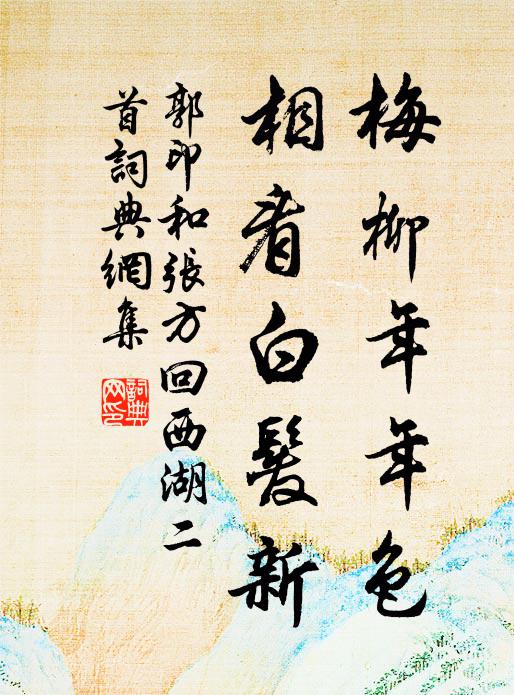 梅柳年年色
相看白髮新
郭印和張方回西湖二
首詞典網集
詞典網印